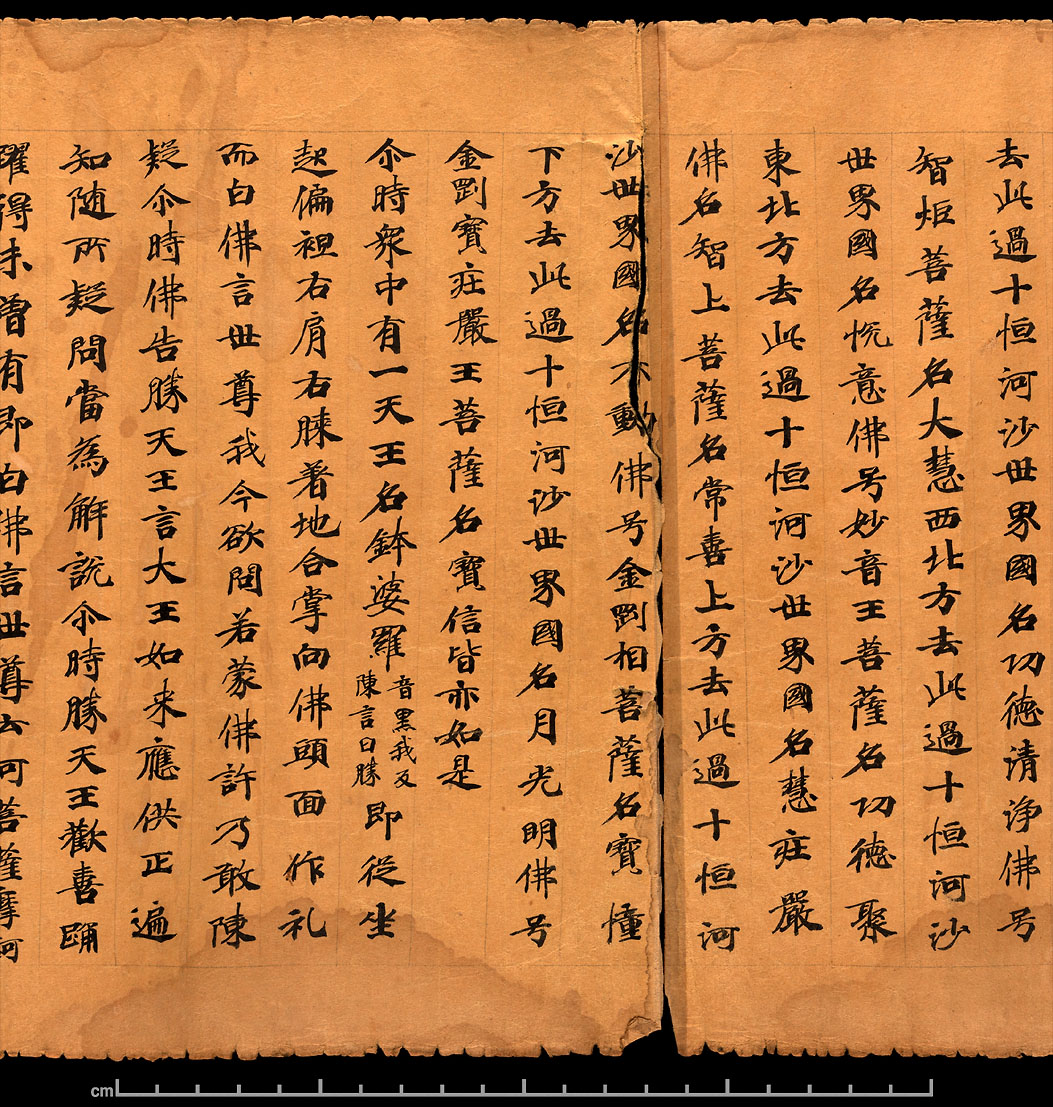 去此過十恒河沙世界國名功德清淨佛号
智炬菩薩名大慧西北方去此過十恒河沙
世界國名悅意佛号妙音王菩薩名功德聚
東北方去此過十恒河沙世界國名慧莊嚴
佛名智上菩薩名常喜上方去此過十恒河
沙世界國名不動佛号金剛相菩薩名寶幢
下方去此過十恒河沙世界國名月光明佛号
金剛寶莊嚴王菩薩名寶信皆亦如是
尒時衆中有一天王名鉢婆羅音黑我反陳言曰勝即從坐
起偏袒右肩右膝著地合掌向佛頭面作礼
而白佛言世尊我今欲問若蒙佛許乃敢陳
疑尒時佛告勝天王言大王如来應供正遍
知随所疑問當為解說尒時勝天王歡喜踊
躍得未曾有即白佛言世尊云何菩薩摩訶
cm